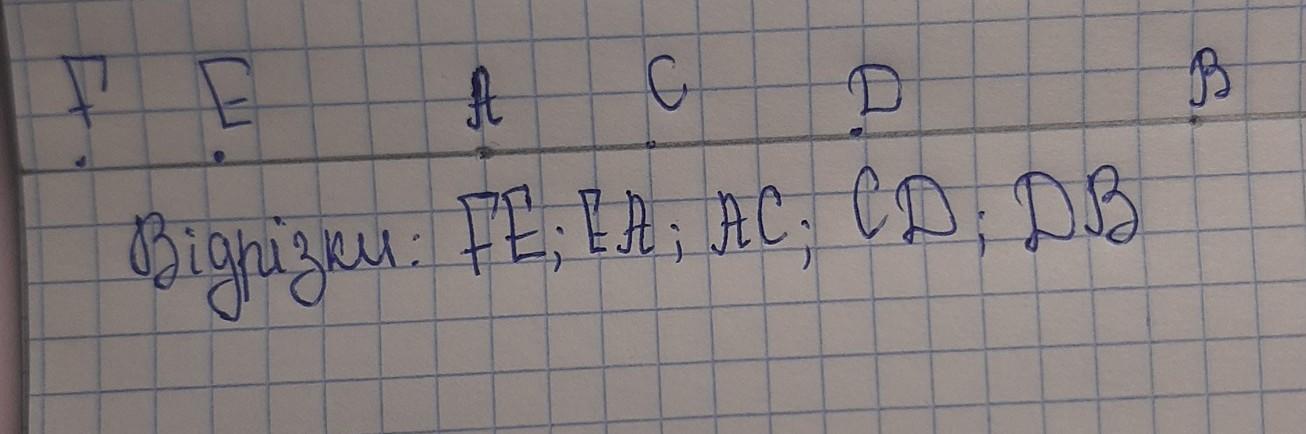 F E A C D B
Відрізки: FE; EA; AC; CD; DB